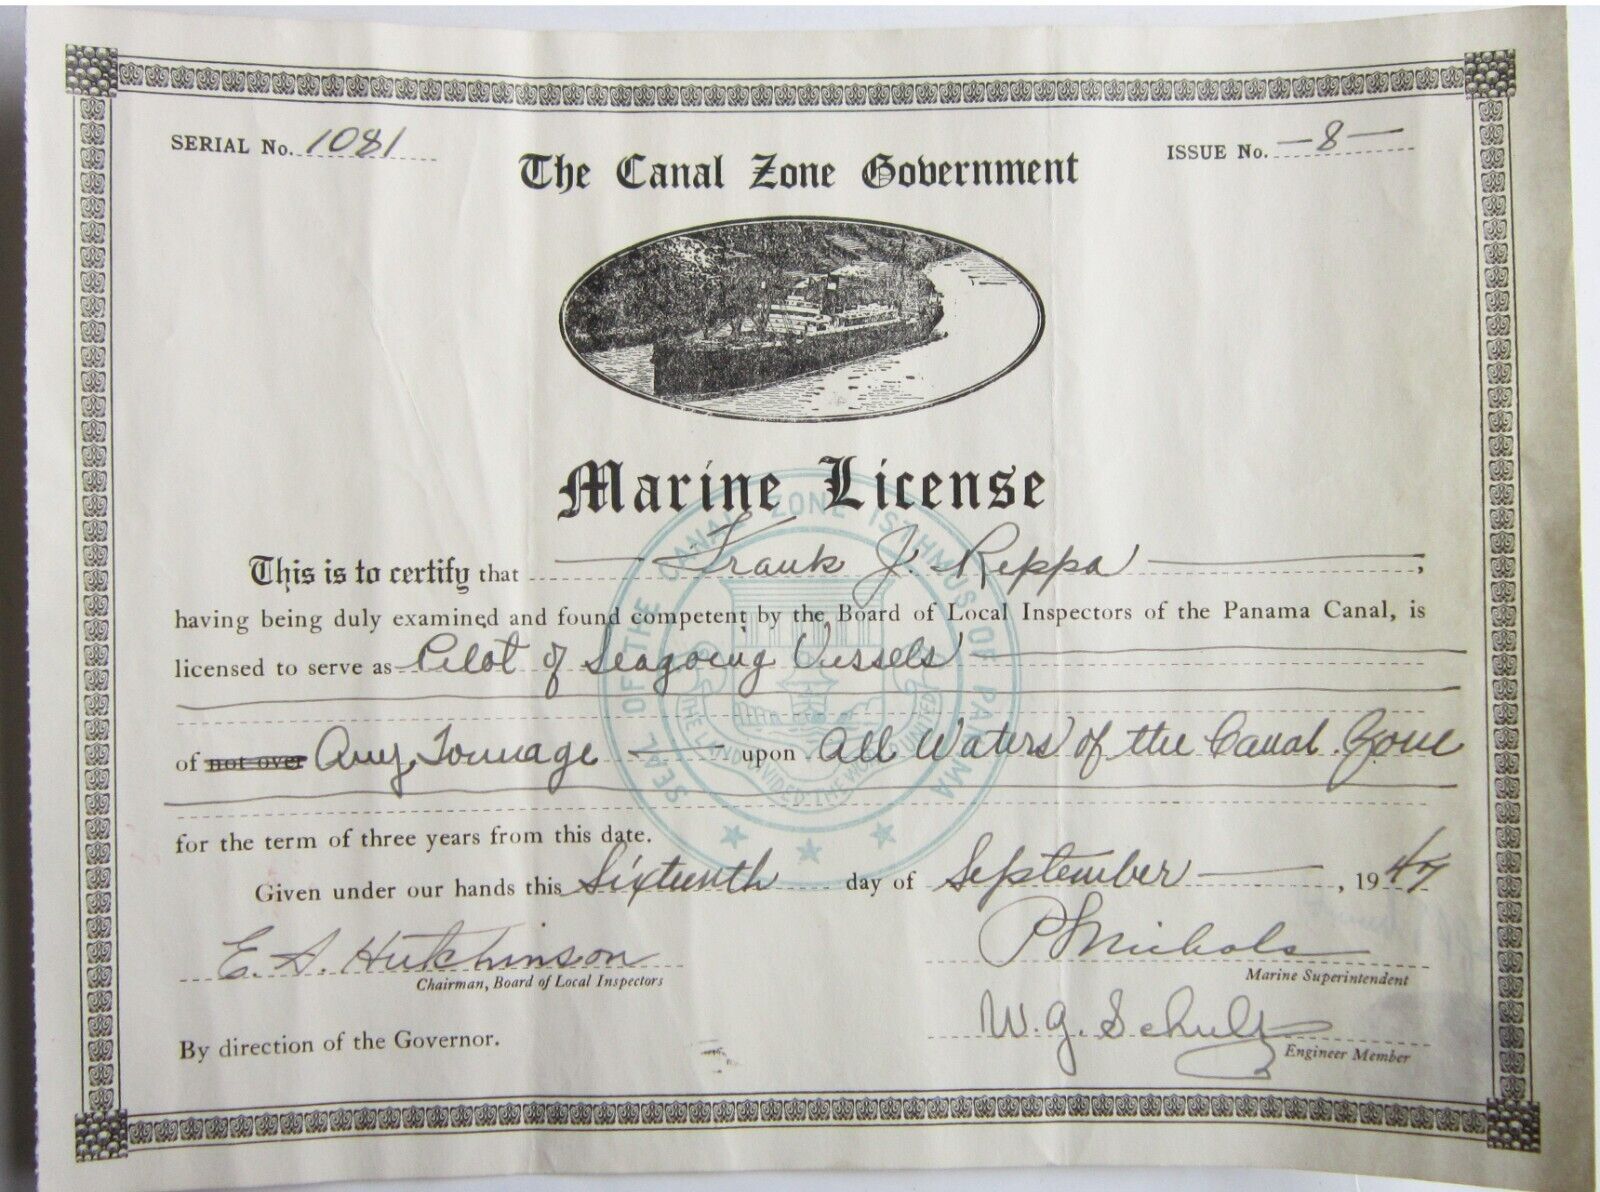 SERIAL No. 1081
ISSUE No. -8-
The Canal Zone Government
Marine License
This is to certify that Frank J. Reppa,
having being duly examined and found competent by the Board of Local Inspectors of the Panama Canal, is
licensed to serve as Pilot of Seagoing Vessels
of not over Any Tonnage upon All Waters of the Canal Zone
for the term of three years from this date.
Given under our hands this Sixteenth day of September, 1947
E. S. Hutchinson
Chairman, Board of Local Inspectors
Nichols
Marine Superintendent
By direction of the Governor.
W. G. Schultz
Engineer Member
SEAL OF THE CANAL ZONE ISTHMUS OF PANAMA
THE LAND DIVIDED THE WORLD UNITED